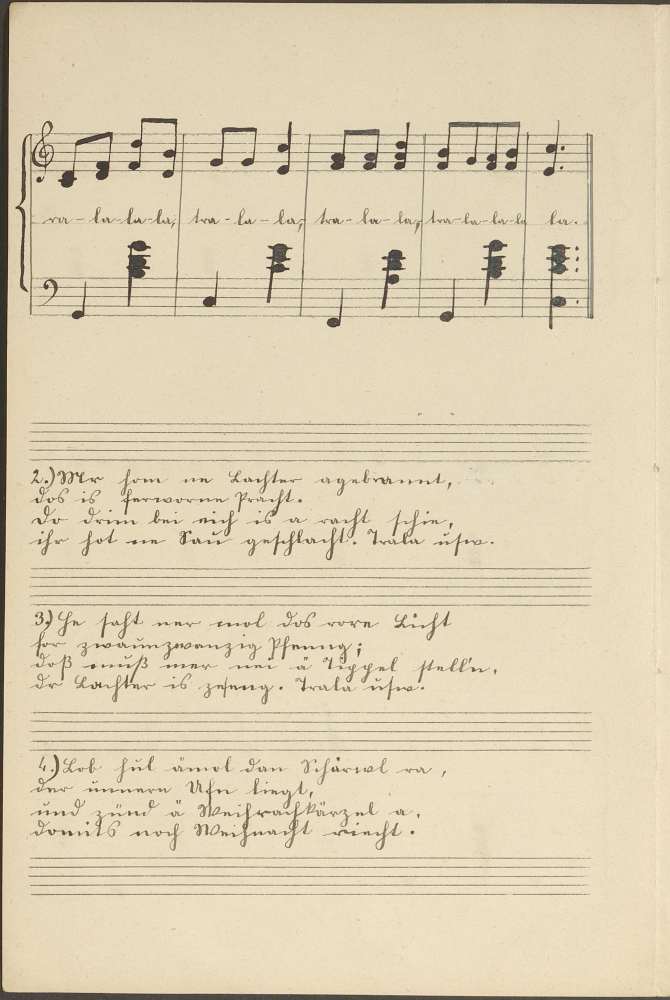 ra-la-la-la, tra-la-la, tra-la-la, tra-la-la-la la.
2.) Mr hom ne Lachter agebrannt,
dos is ferworne Pracht.
Do drim bei eich is a racht schie,
ihr hot ne Sau geschlacht. Trala usw.
3.) He saht ner mol dos rore Licht
for zwaunzwanzig Pfenng;
doß muß mer nei ä Tippel stell'n,
dr Lachter is zeseng. Trala usw.
4.) Lob hul ämol dan Schärwl ra,
der unnern Ufn liegt,
und zünd ä Weihrachkärzel a,
domits noch Weihnacht riecht.